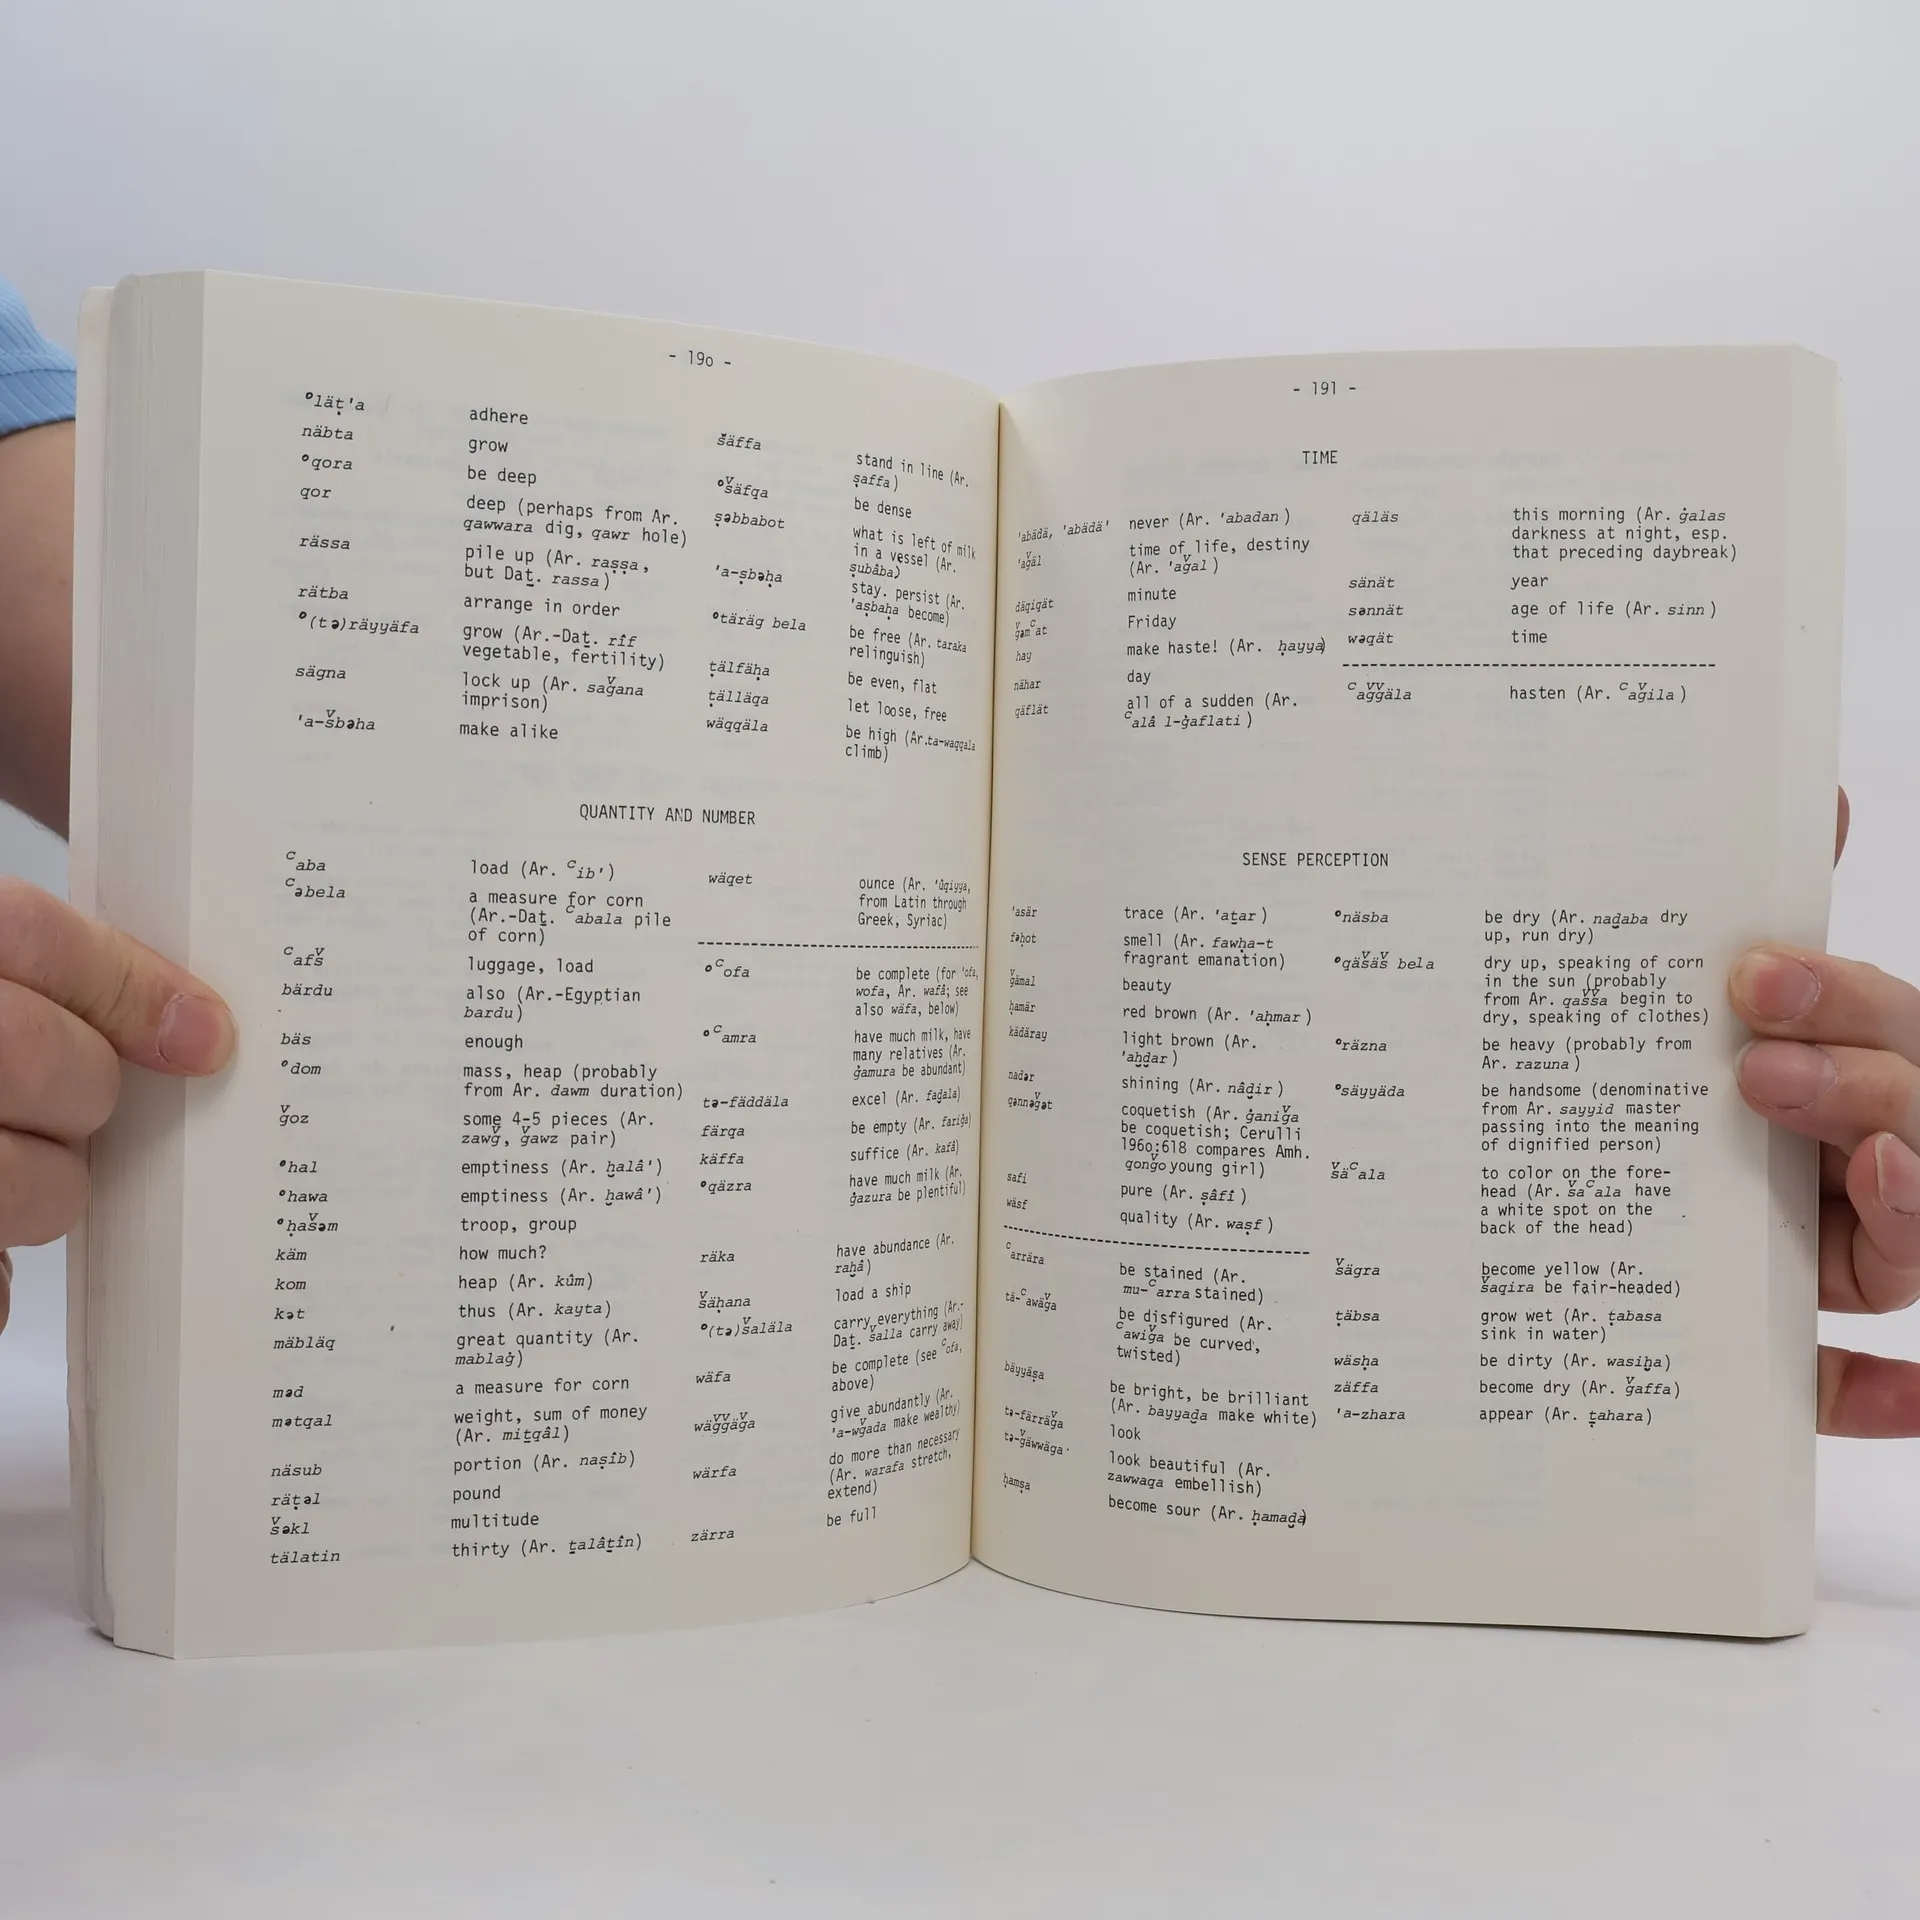 - 19o -
°läṭ'a adhere
näbta grow
°qora be deep
qor deep (perhaps from Ar.
qawwara dig, qawr hole)
rässa pile up (Ar. raṣṣa,
but Daṯ. rassa)
rätba arrange in order
°(tə)räyyäfa grow (Ar.-Daṯ. rîf
vegetable, fertility)
sägna lock up (Ar. saǧana
imprison)
'a-šbəha make alike
šäffa stand in line (Ar.
ṣaffa)
°šäfqa be dense
ṣəbbabot what is left of milk
in a vessel (Ar.
ṣubâba)
'a-ṣbəḥa stay. persist (Ar.
'aṣbaḥa become)
°täräg bela be free (Ar. taraka
relinguish)
ṭälfäḥa be even, flat
ṭälläqa let loose, free
wäqqäla be high (Ar.ta-waqqala
climb)
QUANTITY AND NUMBER
ᶜaba load (Ar. ᶜib')
ᶜəbela a measure for corn
(Ar.-Daṯ. ᶜabala pile
of corn)
ᶜafš luggage, load
bärdu also (Ar.-Egyptian
bardu)
bäs enough
°dom mass, heap (probably
from Ar. dawm duration)
ǧoz some 4-5 pieces (Ar.
zawǧ, ǧawz pair)
°hal emptiness (Ar. ḫalâ')
°hawa emptiness (Ar. ḫawâ')
°ḥašəm troop, group
käm how much?
kom heap (Ar. kûm)
kət thus (Ar. kayta)
mäbläq great quantity (Ar.
mablaġ)
məd a measure for corn
mətqal weight, sum of money
(Ar. miṯqâl)
näsub portion (Ar. naṣîb)
räṭəl pound
šəkl multitude
tälatin thirty (Ar. ṯalâṯîn)
wäqet ounce (Ar. 'ûqiyya,
from Latin through
Greek, Syriac)
°ᶜofa be complete (for 'ofa,
wofa, Ar. wafâ; see
also wäfa, below)
°ᶜamra have much milk, have
many relatives (Ar.
ġamura be abundant)
tə-fäddäla excel (Ar. faḍala)
färqa be empty (Ar. fariġa)
käffa suffice (Ar. kafâ)
°qäzra have much milk (Ar.
ġazura be plentiful)
räka have abundance (Ar.
raḫâ)
šäḥana load a ship
°(tə)šaläla carry everything (Ar.-
Daṯ. šalla carry away)
wäfa be complete (see ᶜofa,
above)
wäǧǧäǧa give abundantly (Ar.
'a-wǧada make wealthy)
wärfa do more than necessary
(Ar. warafa stretch,
extend)
zärra be full
- 191 -
TIME
'abädä, 'abädä' never (Ar. 'abadan)
'aǧäl time of life, destiny
(Ar. 'aǧal)
däqiqät minute
ǧəmᶜat Friday
hay make haste! (Ar. ḥayya)
nähar day
qäflät all of a sudden (Ar.
ᶜalâ l-ġaflati)
qäläs this morning (Ar. ġalas
darkness at night, esp.
that preceding daybreak)
sänät year
sənnät age of life (Ar. sinn)
wəqät time
ᶜaǧǧäla hasten (Ar. ᶜaǧila)
SENSE PERCEPTION
'asär trace (Ar. 'aṯar)
fəḥot smell (Ar. fawḥa-t
fragrant emanation)
ǧämal beauty
ḥamär red brown (Ar. 'aḥmar)
kädäray light brown (Ar.
'aḫḍar)
nadər shining (Ar. nâḍir)
qənnəǧət coquetish (Ar. ġaniǧa
be coquetish; Cerulli
196o:618 compares Amh.
qonǧo young girl)
safi pure (Ar. ṣâfî)
wäsf quality (Ar. waṣf)
ᶜarrära be stained (Ar.
mu-ᶜarra stained)
tä-ᶜawäǧa be disfigured (Ar.
ᶜawiǧa be curved,
twisted)
bäyyäṣa be bright, be brilliant
(Ar. bayyaḍa make white)
tə-färräǧa look
tə-ǧäwwäga look beautiful (Ar.
zawwaqa embellish)
ḥamṣa become sour (Ar. ḥamaḍa)
°näsba be dry (Ar. naḍaba dry
up, run dry)
°qäšäš bela dry up, speaking of corn
in the sun (probably
from Ar. qašša begin to
dry, speaking of clothes)
°räzna be heavy (probably from
Ar. razuna)
°säyyäda be handsome (denominative
from Ar. sayyid master
passing into the meaning
of dignified person)
šäᶜala to color on the fore-
head (Ar. šaᶜala have
a white spot on the
back of the head)
šägra become yellow (Ar.
šaqira be fair-headed)
ṭäbsa grow wet (Ar. ṭabasa
sink in water)
wäsḥa be dirty (Ar. wasiḫa)
zäffa become dry (Ar. ǧaffa)
'a-zhara appear (Ar. ṭahara)